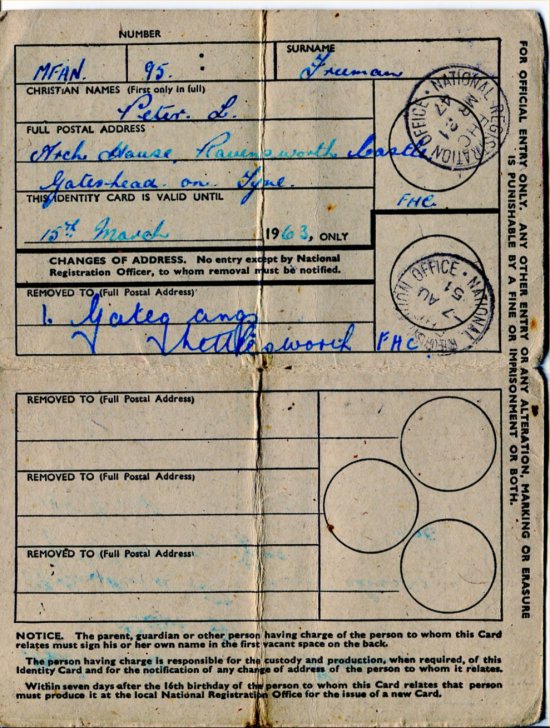 NUMBER
SURNAME
MFAN. 95. :
Freeman
CHRISTIAN NAMES (First only in full)
Peter. L.
FULL POSTAL ADDRESS
Arch House, Ravensworth Castle
Gateshead on Tyne.
THIS IDENTITY CARD IS VALID UNTIL
FHC.
15th March 1963, ONLY
CHANGES OF ADDRESS. No entry except by National
Registration Officer, to whom removal must be notified.
REMOVED TO (Full Postal Address)
1.
Nettlesworth FHC.
NATIONAL REGISTRATION OFFICE
FHC
21 MR
47
NATIONAL REGISTRATION OFFICE
AU
51
REMOVED TO (Full Postal Address)
REMOVED TO (Full Postal Address)
REMOVED TO (Full Postal Address)
NOTICE. The parent, guardian or other person having charge of the person to whom this Card
relates must sign his or her own name in the first vacant space on the back.
The person having charge is responsible for the custody and production, when required, of this
Identity Card and for the notification of any change of address of the person to whom it relates.
Within seven days after the 16th birthday of the person to whom this Card relates that person
must produce it at the local National Registration Office for the issue of a new Card.
FOR OFFICIAL ENTRY ONLY. ANY OTHER ENTRY OR ANY ALTERATION, MARKING OR ERASURE
IS PUNISHABLE BY A FINE OR IMPRISONMENT OR BOTH.